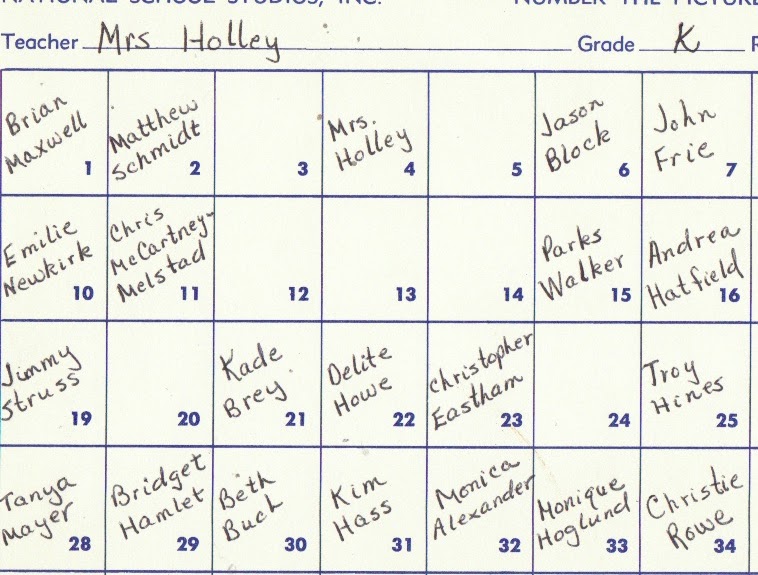 NATIONAL SCHOOL STUDIOS, INC. NUMBER THE PICTURE
Teacher Mrs Holley Grade K R
Brian Maxwell 1
Matthew Schmidt 2
3
Mrs. Holley 4
5
Jason Block 6
John Frie 7
Emilie Newkirk 10
Chris McCartney-Melstad 11
12
13
14
Parks Walker 15
Andrea Hatfield 16
Jimmy Struss 19
20
Kade Brey 21
Delite Howe 22
Christopher Eastham 23
24
Troy Hines 25
Tanya Mayer 28
Bridget Hamlet 29
Beth Buch 30
Kim Hass 31
Monica Alexander 32
Monique Hoglund 33
Christie Rowe 34